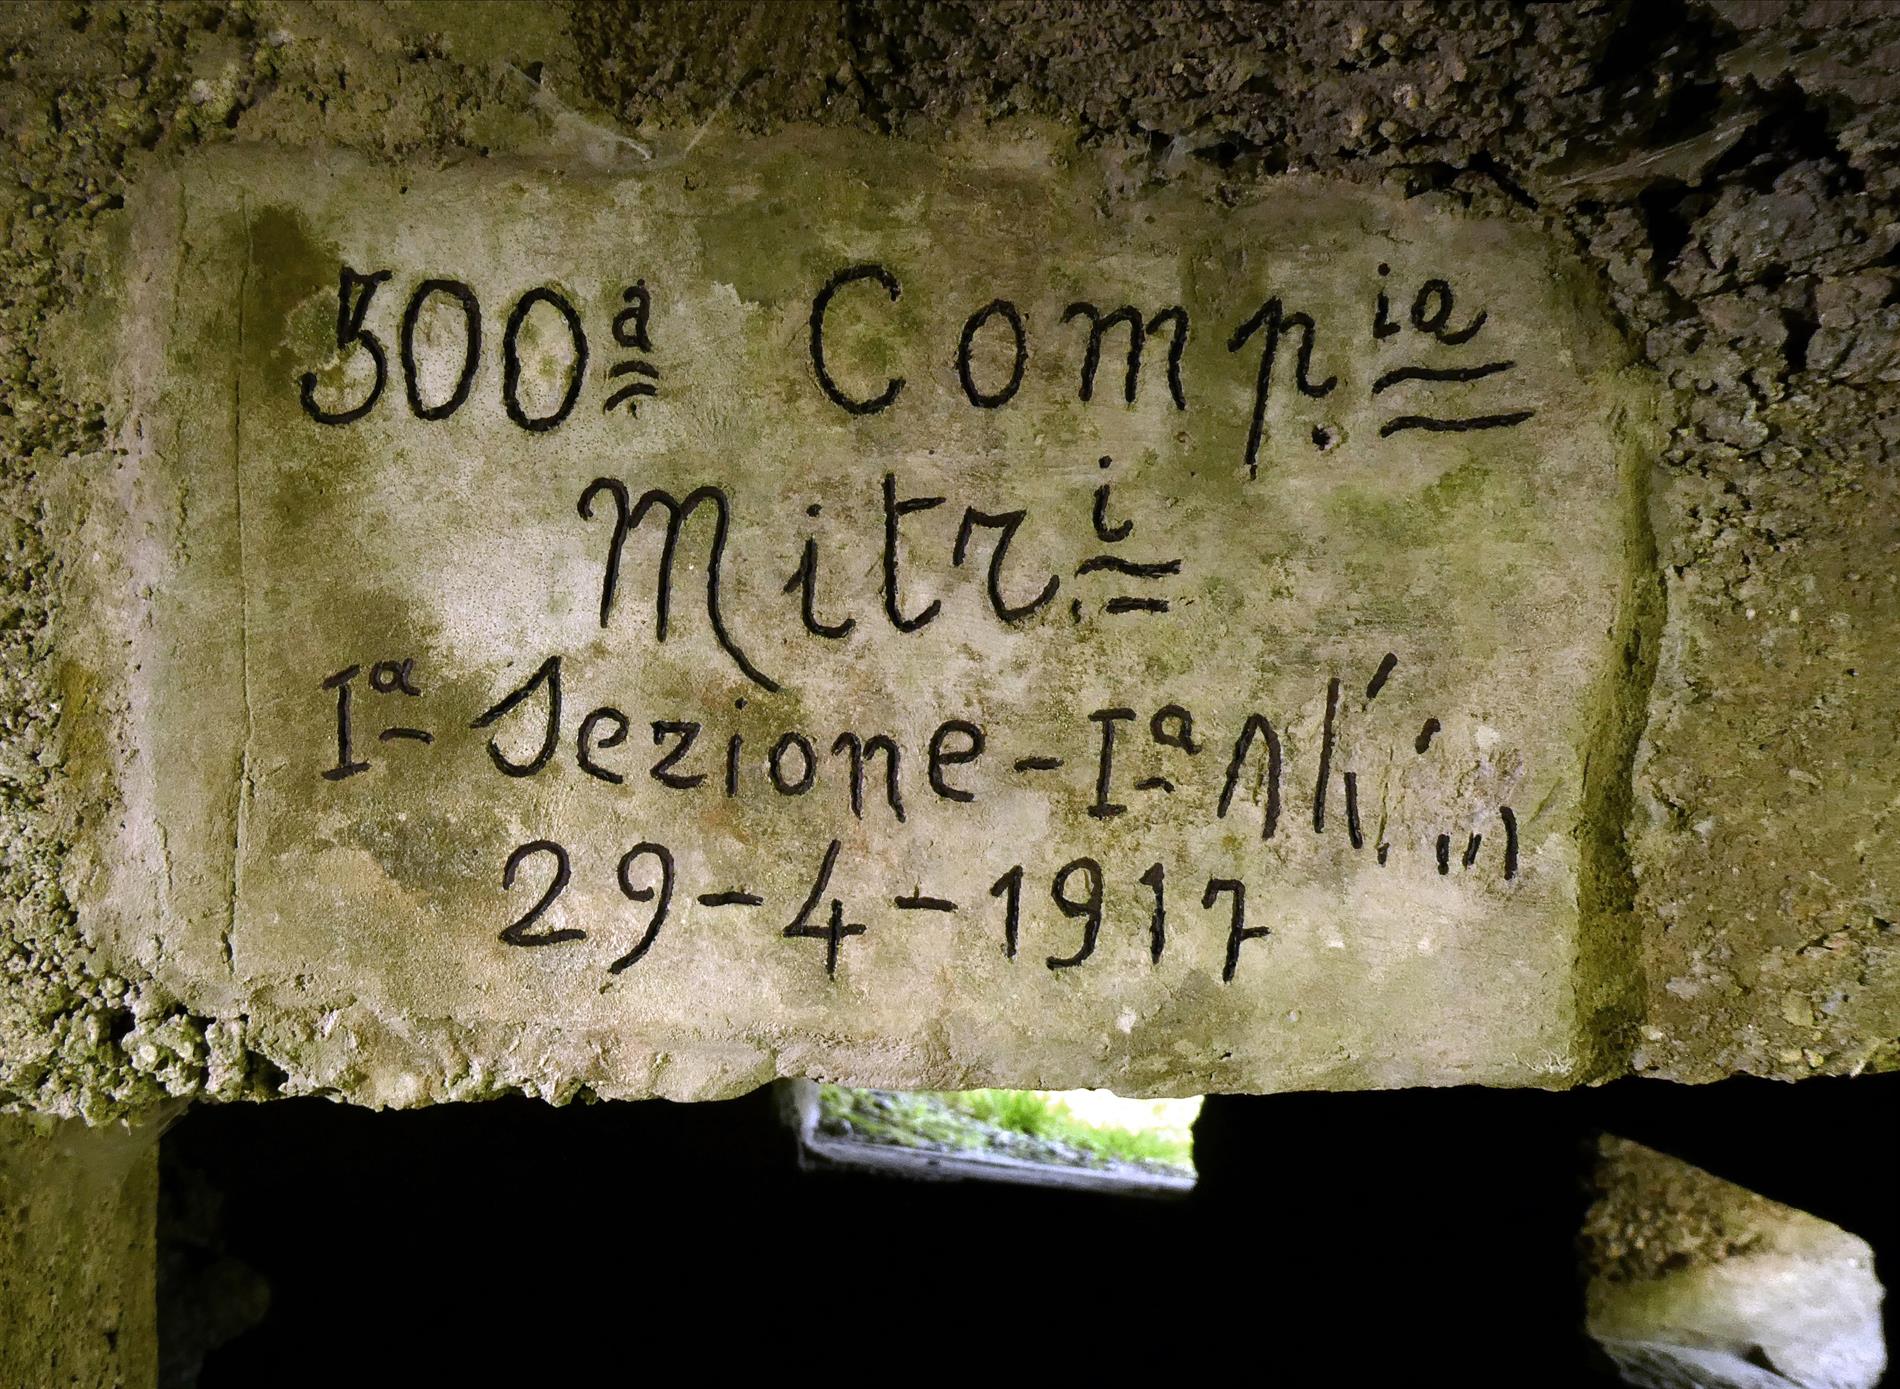 500ª Compia
Mitri
Iª Sezione - Iª
29-4-1917